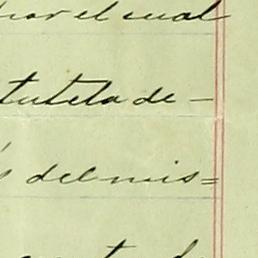 por el cual
tutela de —
s del mis=